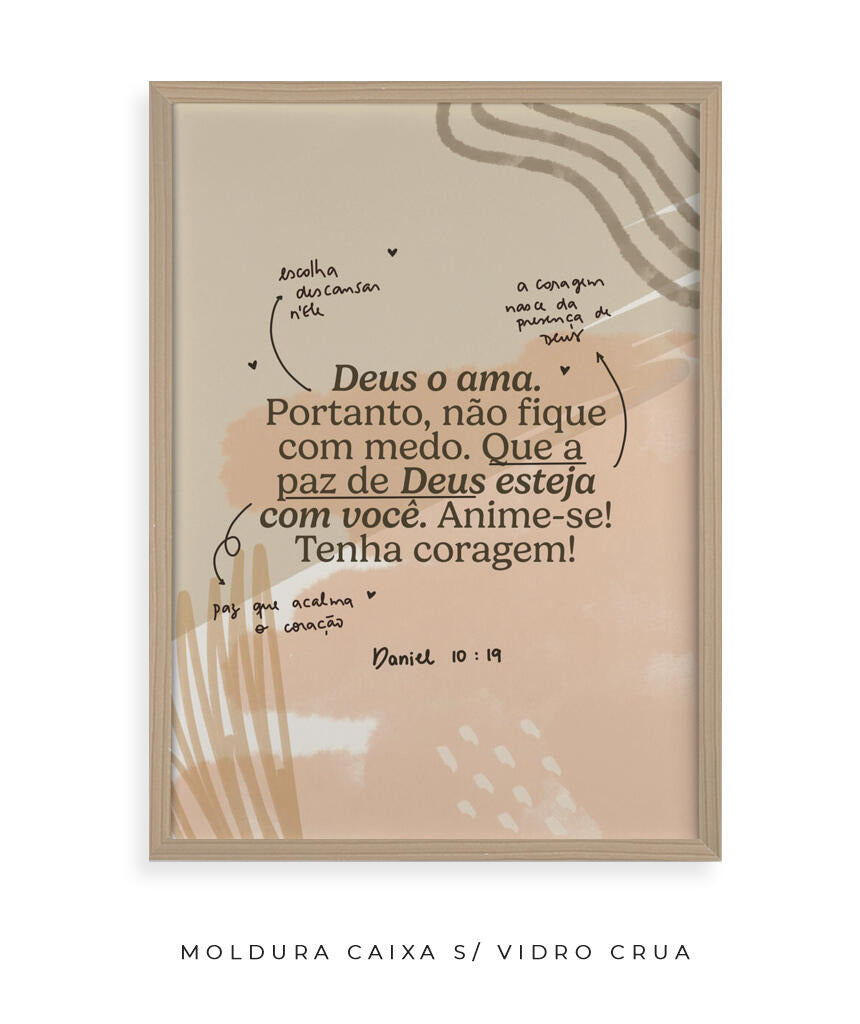 escolha
descansar
n'Ele
a coragem
nasce da
presença de
Deus
Deus o ama.
Portanto, não fique
com medo. Que a
paz de Deus esteja
com você. Anime-se!
Tenha coragem!
paz que acalma
o coração
Daniel 10:19
MOLDURA CAIXA S/ VIDRO CRUA